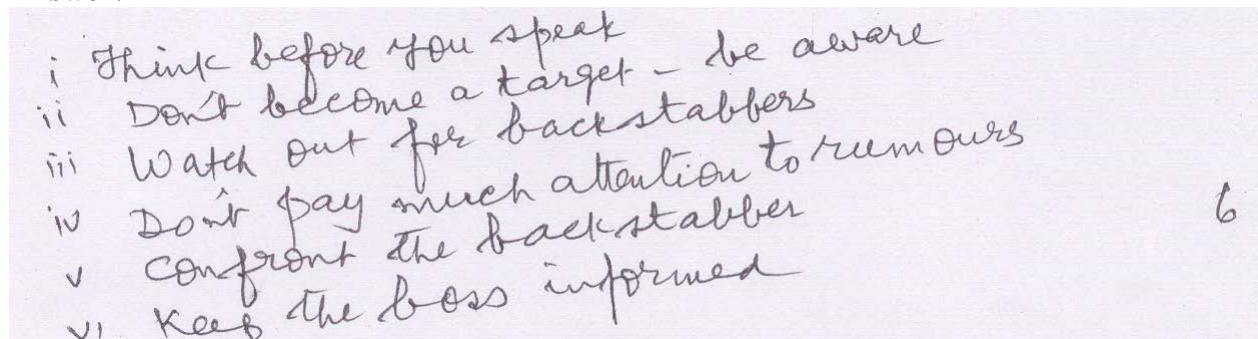 i Think before you speak
ii Don't become a target - be aware
iii Watch out for backstabbers
iv Don't pay much attention to rumours
v Confront the backstabber
6
vi Keep the boss informed